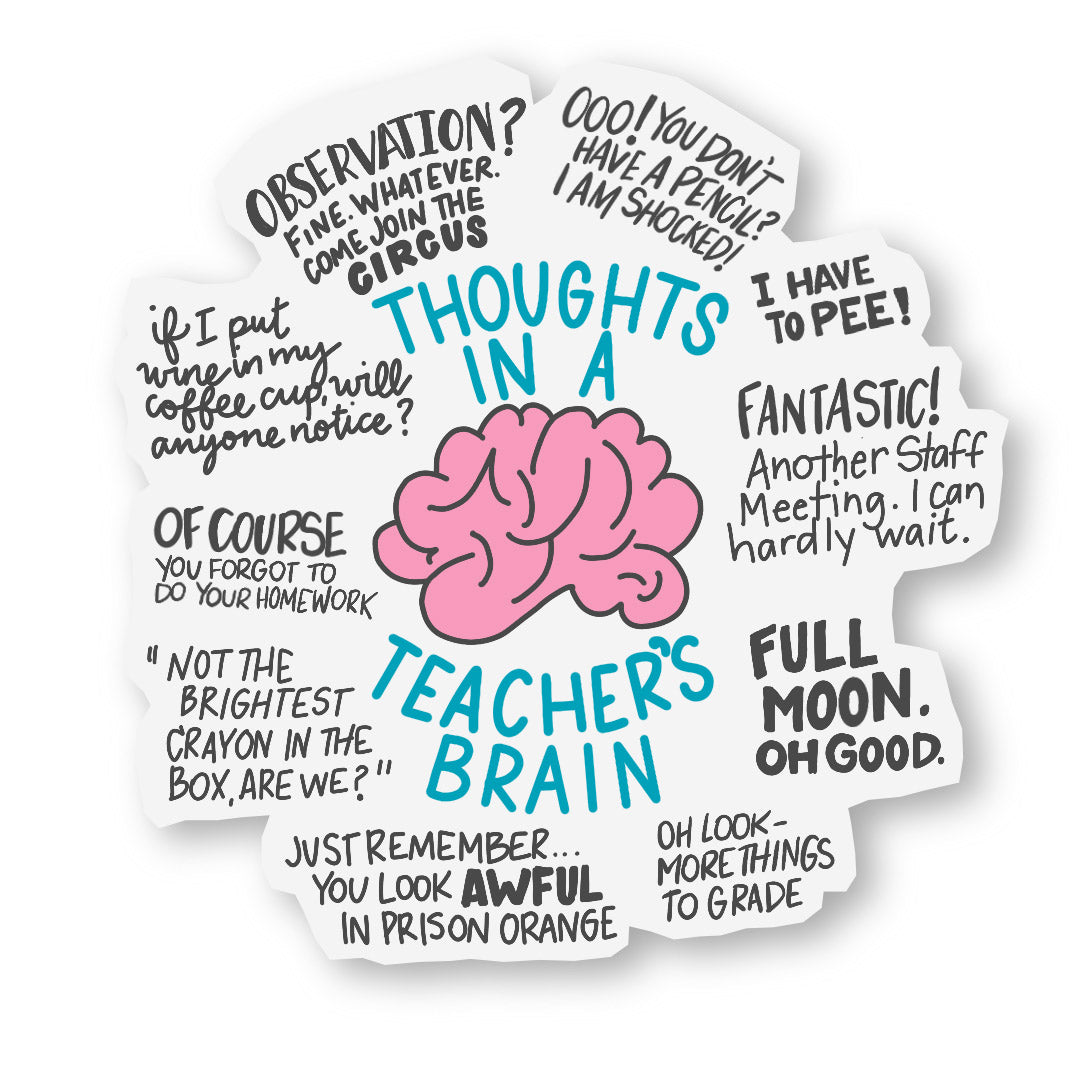 OBSERVATION?
FINE. WHATEVER.
COME JOIN THE
CIRCUS
OOO! YOU DON'T
HAVE A PENCIL?
I AM SHOCKED!
THOUGHTS
IN A
I HAVE
TO PEE!
if I put
wine in my
coffee cup, will
anyone notice?
FANTASTIC!
Another Staff
Meeting. I can
hardly wait.
OF COURSE
YOU FORGOT TO
DO YOUR HOMEWORK
TEACHER'S
BRAIN
"NOT THE
BRIGHTEST
CRAYON IN THE
BOX, ARE WE?"
FULL
MOON.
OH GOOD.
JUST REMEMBER...
YOU LOOK AWFUL
IN PRISON ORANGE
OH LOOK-
MORE THINGS
TO GRADE